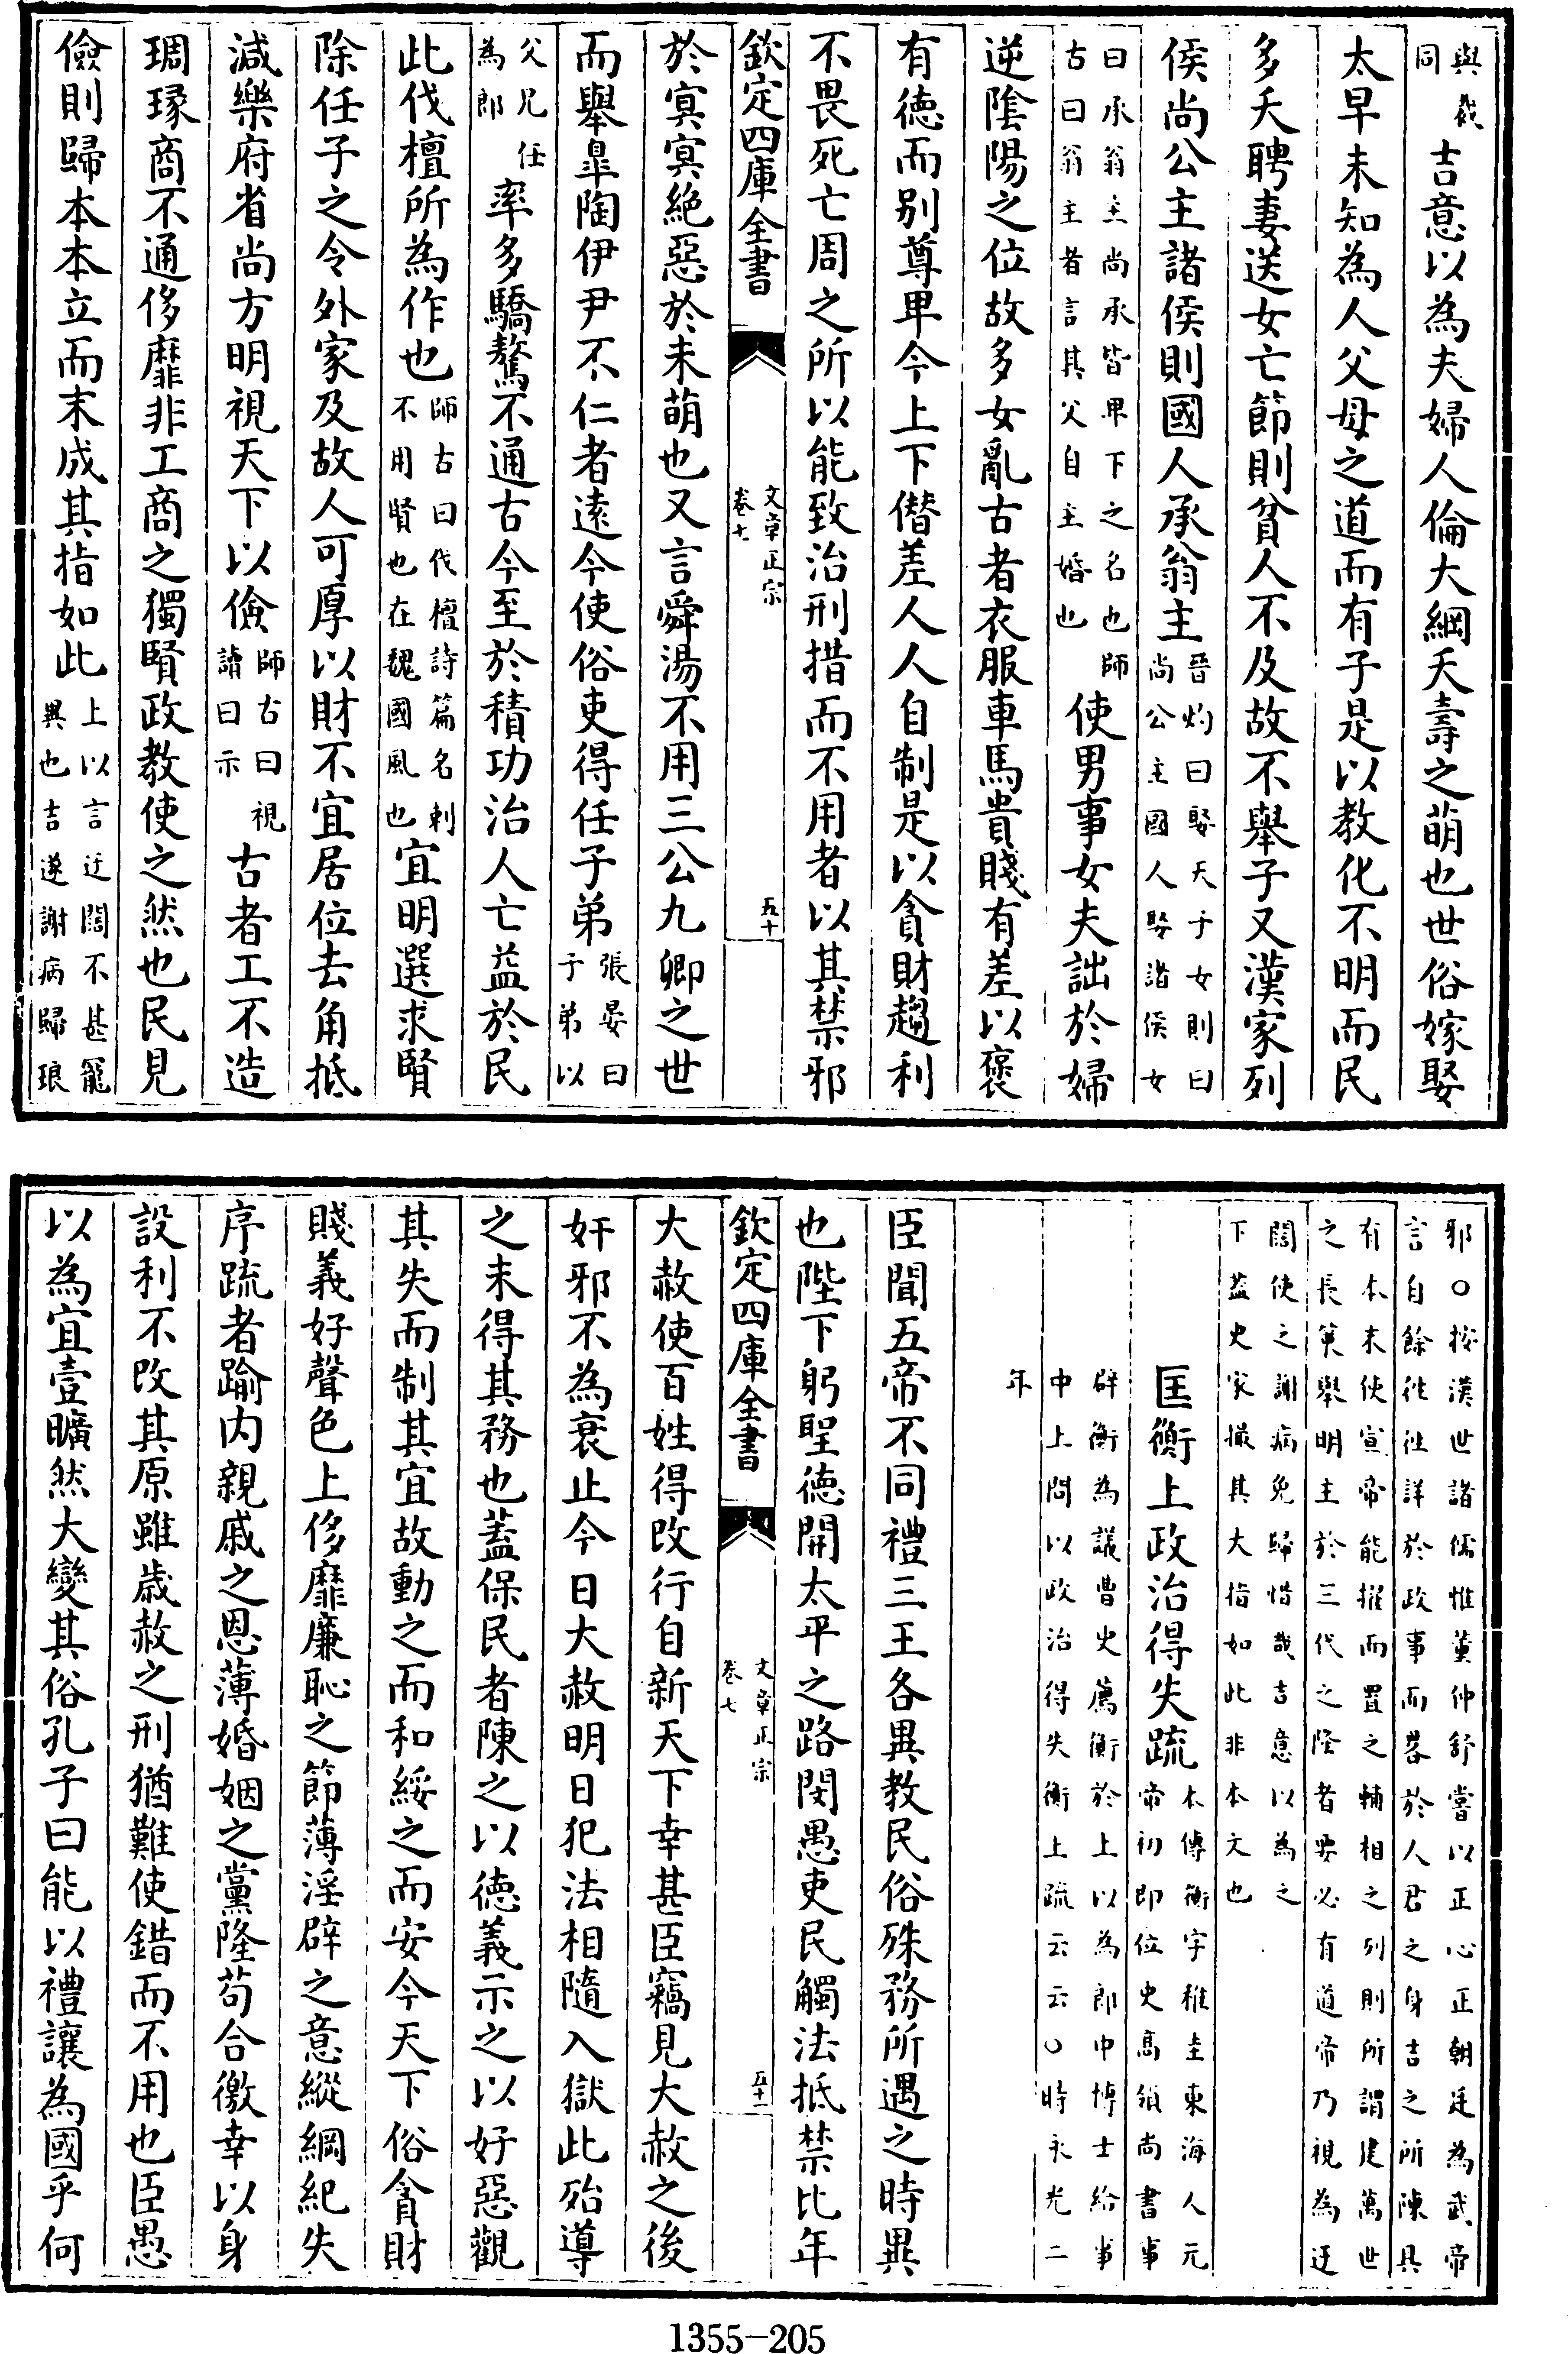 與戱同吉意以為夫婦人倫大綱夭壽之萌也世俗嫁娶
太早未知為人父母之道而有子是以教化不明而民
多夭聘妻送女亡節則貧人不及故不舉子又漢家列
侯尚公主諸侯則國人承翁主晉灼曰娶天子女則曰尚公主國人娶諸侯女
曰承翁主尚承皆卑下之名也師古曰翁主者言其父自主婚也使男事女夫詘於婦
逆陰陽之位故多女亂古者衣服車馬貴賤有差以褒
有徳而别尊卑今上下僭差人人自制是以貪財趨利
不畏死亡周之所以能致治刑措而不用者以其禁邪
欽定四庫全書 文章正宗 卷七 五十
於冥冥絶惡於未萌也又言舜湯不用三公九卿之世
而舉臯陶伊尹不仁者逺今使俗吏得任子弟張晏曰子弟以
父兄任為郎率多驕驁不通古今至於積功治人亡益於民
此伐檀所為作也師古曰伐檀詩篇名刺不用賢也在魏國風也宜明選求賢
除任子之令外家及故人可厚以財不宜居位去角抵
減樂府省尚方明視天下以儉師古曰視讀曰示古者工不造
琱瑑商不通侈靡非工商之獨賢政教使之然也民見
儉則歸本本立而末成其指如此上以言迂闊不甚寵異也吉遂謝病歸琅
邪○按漢世諸儒惟董仲舒嘗以正心正朝廷為武帝言自餘徃徃詳於政事而畧於人君之身吉之所陳具
有本末使宣帝能擢而置之輔相之列則所謂建萬世之長策舉明主於三代之隆者要必有道帝乃視為迂
闊使之謝病免歸惜哉吉意以為之下葢史家撮其大指如此非本文也
匡衡上政治得失疏本傳衡字稚圭東海人元帝初即位史髙領尚書事
辟衡為議曹史薦衡於上以為郎中博士給事中上問以政治得失衡上疏云云○時永光二
年
臣聞五帝不同禮三王各異教民俗殊務所遇之時異
也陛下躬聖徳開太平之路閔愚吏民觸法抵禁比年
欽定四庫全書 文章正宗 卷七 五十一
大赦使百姓得改行自新天下幸甚臣竊見大赦之後
奸邪不為衰止今日大赦明日犯法相隨入獄此殆導
之未得其務也蓋保民者陳之以徳義示之以好惡觀
其失而制其宜故動之而和綏之而安今天下俗貪財
賤義好聲色上侈靡廉恥之節薄淫辟之意縱綱紀失
序疏者踰内親戚之恩薄婚姻之黨隆苟合徼幸以身
設利不改其原雖歲赦之刑猶難使錯而不用也臣愚
以為宜壹曠然大變其俗孔子曰能以禮讓為國乎何
1355-205